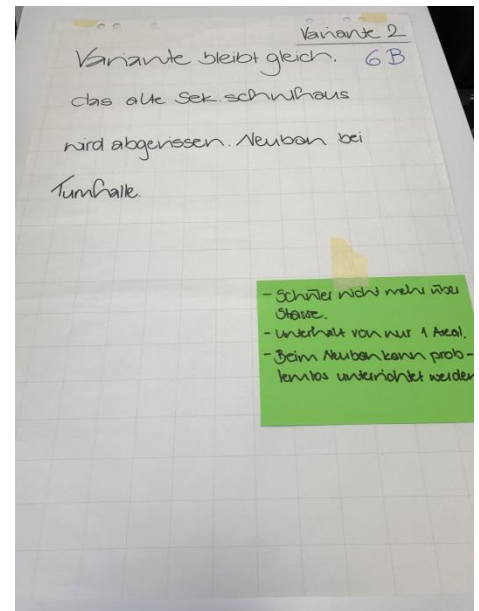 Variante 2
Variante bleibt gleich. 6B
das alte Sek. schulhaus
wird abgerissen. Neubau bei
Turnhalle.
- Schüler nicht mehr über
Strasse.
- Unterhalt von nur 1 Areal.
- Beim Neubau kann prob-
lemlos unterrichtet werden